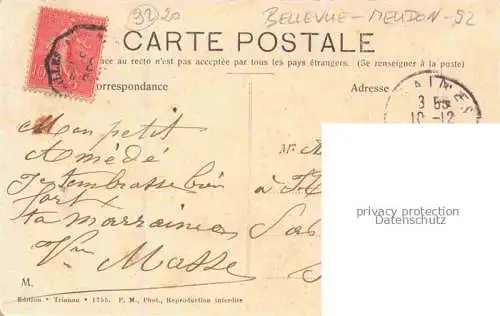 (92) 20 BELLEVUE - MEUDON - 92
CARTE POSTALE
ace au recto n'est pas acceptée par tous les pays étrangers. (Se renseigner à la poste)
orrespondance
Adresse
3 55
10-12
Mon petit
Amédé
Je t'embrasse bien
fort
ta marraine
Masse
Mr
à
privacy protection
Datenschutz
M.
Edition • Trianon • 1755. P. M., Phot., Reproduction interdite